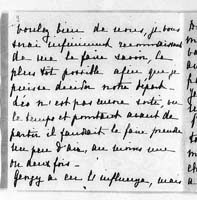 voulez bien de nous, je vous
serai infiniment reconnaissant
de me le faire savoir, le
plus tôt possible afin que je
puisse décider notre départ.
n'est pas encore sorti, vu
le temps et pourtant avant de
partir il faudrait le faire prendre
un peu d'air, au moins une
ou deux fois.
a eu l'influenza, mais